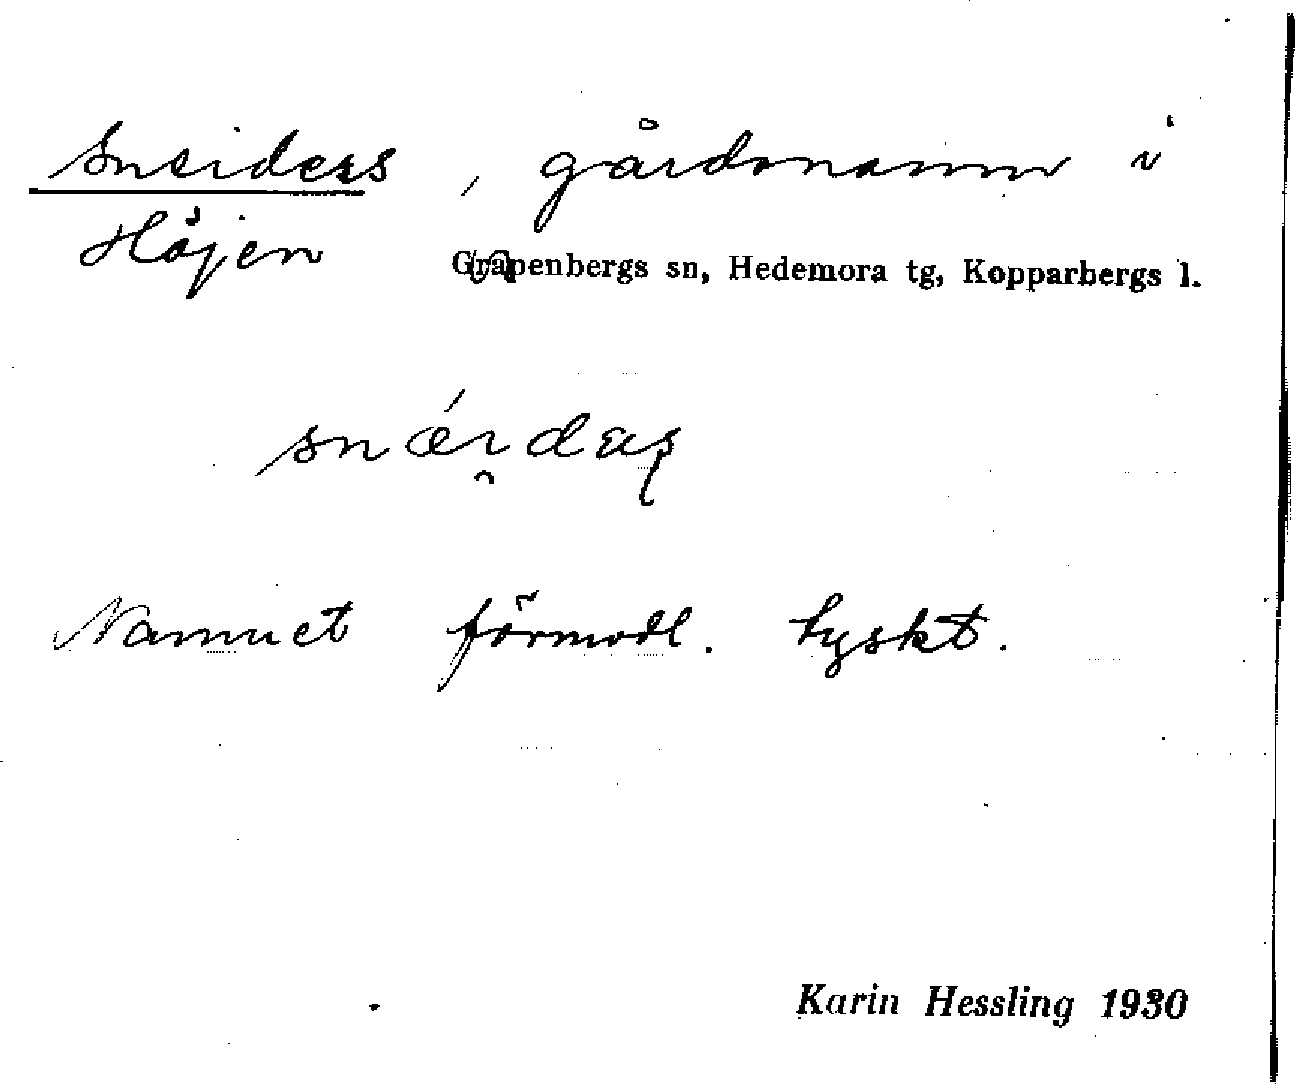 Sneiders, gårdsnamn i
Höjen
Grapenbergs sn, Hedemora tg, Kopparbergs l.
Namnet förmodl. tyskt.
Karin Hessling 1930